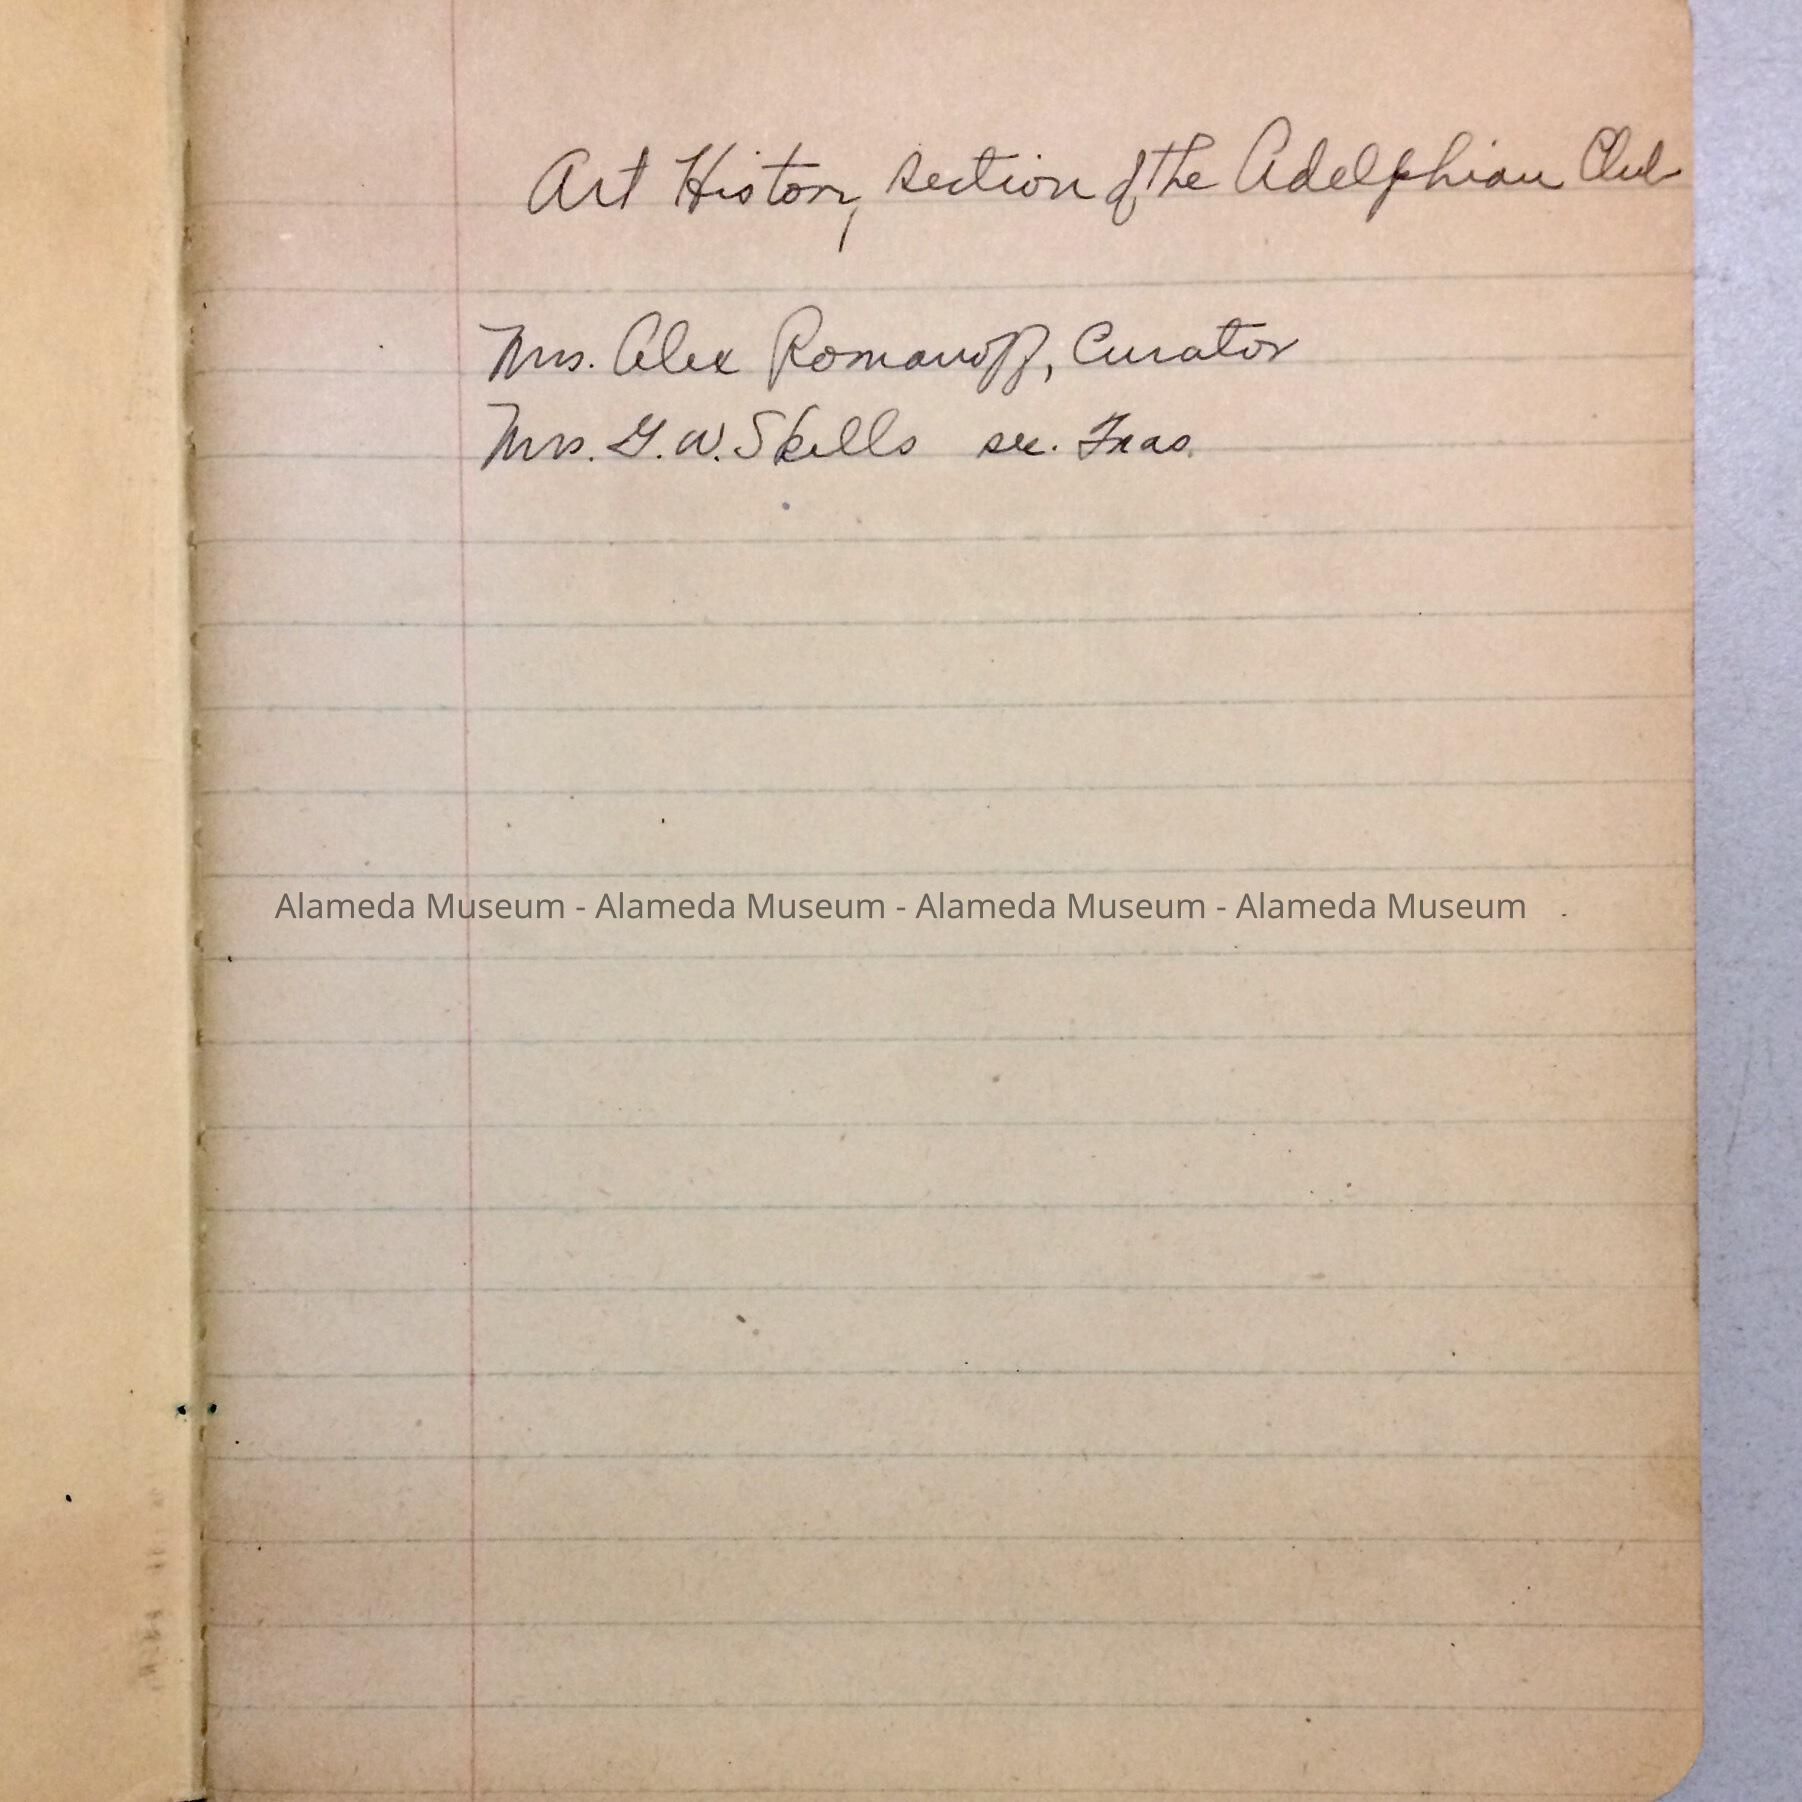 Art History section of the Adelphian Club
Mrs. Alex Romanoff, Curator
Mrs. G. W. Skells sec. Treas.
Alameda Museum - Alameda Museum - Alameda Museum - Alameda Museum